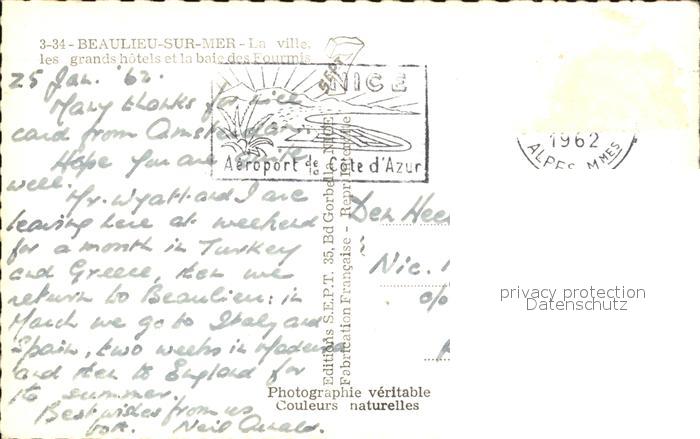 3-34 - BEAULIEU-SUR-MER - La ville,
les grands hôtels et la baie des Fourmis
25 Jan. '62.
Many thanks for nice
card from Amsterdam.
Hope you are quite
well.
Mr. Wyatt and I are
leaving here at weekend
for a month in Turkey
and Greece, then we
return to Beaulieu: in
March we go to Italy and
Spain, two weeks in Madeira
and then to England for
the summer.
Best wishes from us
both. Neil
SEPT
NICE
Aéroport de la Côte d'Azur
1962
ALPES MMES
Editions S.E.P.T. 35, Bd Gorbella, NICE
Fabrication Française - Repr. Interdite
Den Hee
Nic.
c/o
privacy protection
Datenschutz
Photographie véritable
Couleurs naturelles